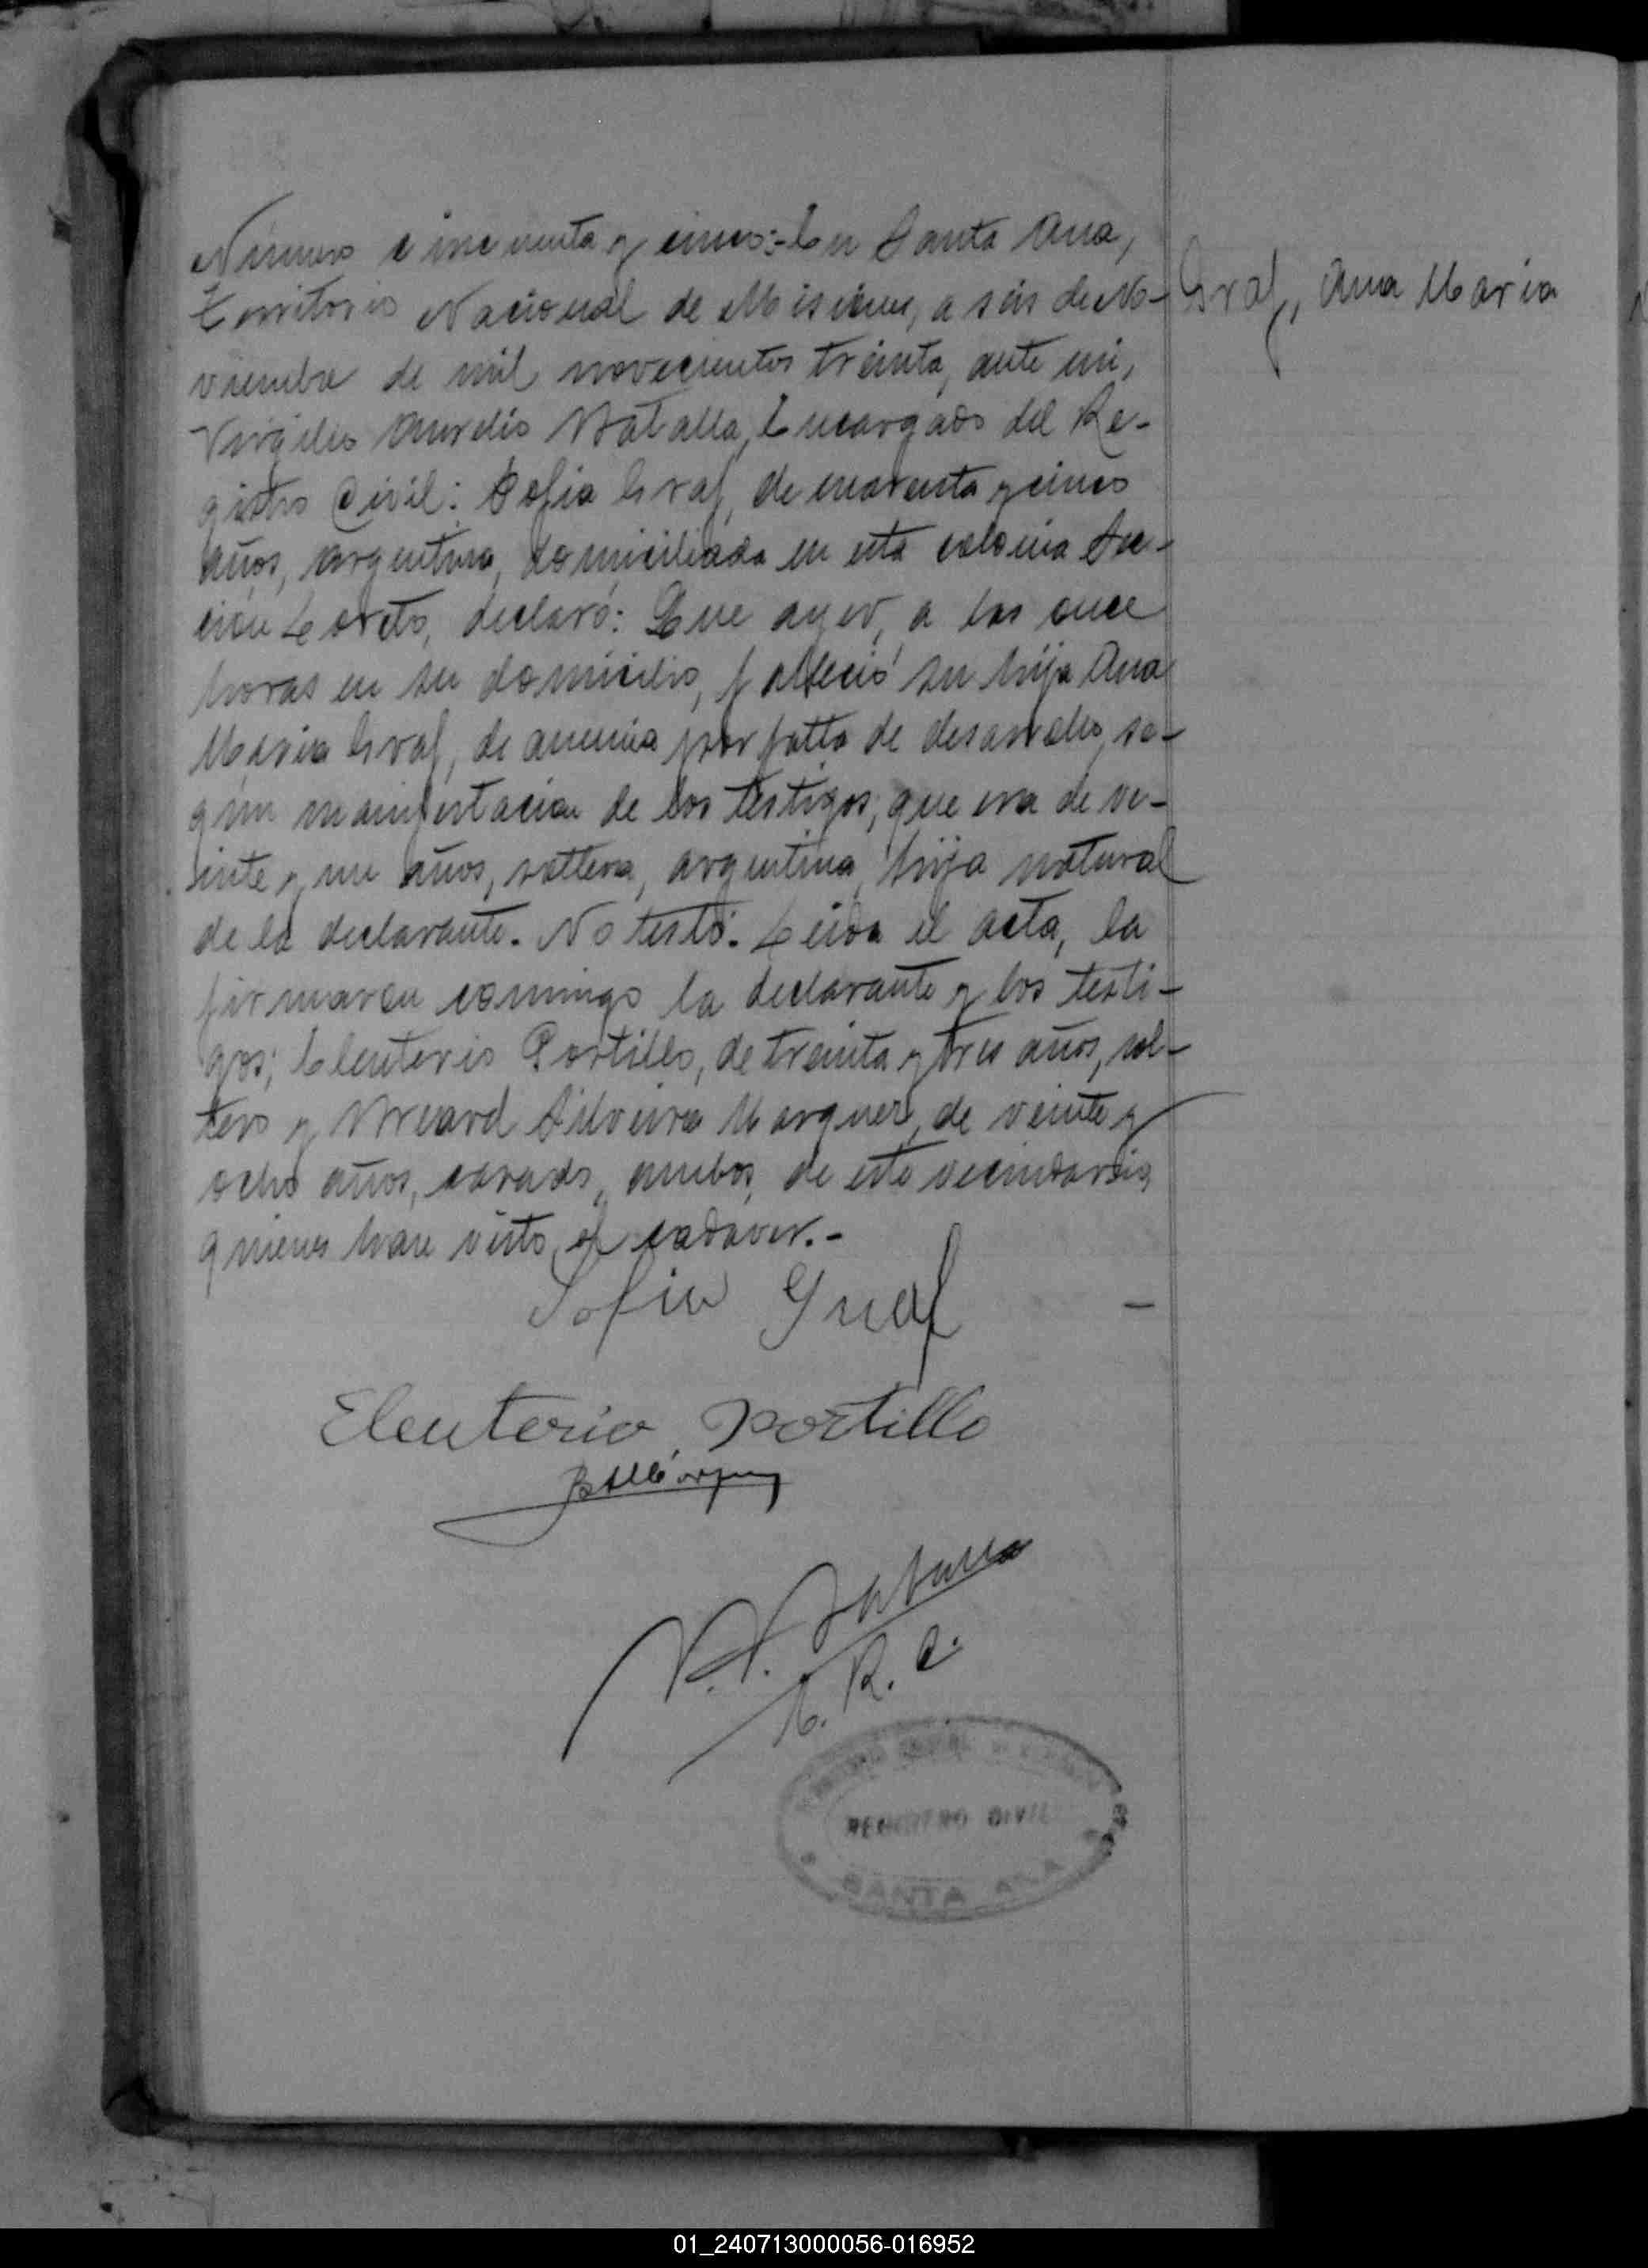 Número cincuenta y cinco:- En Santa Ana,
Territorio Nacional de Misiones, a seis de No-
viembre de mil novecientos treinta, ante mi,
Virgilio Aurelio Batalla, Encargado del Re-
gistro Civil: Sofia Graf, de cuarenta y cinco
años, argentina, domiciliada en esta colonia Sec-
ción Loreto, declaró: Que ayer, a las once
horas en su domicilio, falleció su hija Ana
Maria Graf, de anemia por falta de desarrollo, se-
gún manifestacion de los testigos; que era de ve-
inte y un años, soltera, argentina, hija natural
de la declarante. No testó. Leida el acta, la
firmaron conmigo la declarante y los testi-
gos; Eleuterio Portillo, de treinta y tres años, sol-
tero y Silveira Marquez, de veinte y
ocho años, casado, ambos de este vecindario,
quienes han visto el cadáver.-
Graf, Ana Maria
Sofia Graf
Eleuterio Portillo
V. A. Batalla
E. R. C.
REGISTRO CIVIL
SANTA ANA
01_240713000056-016952